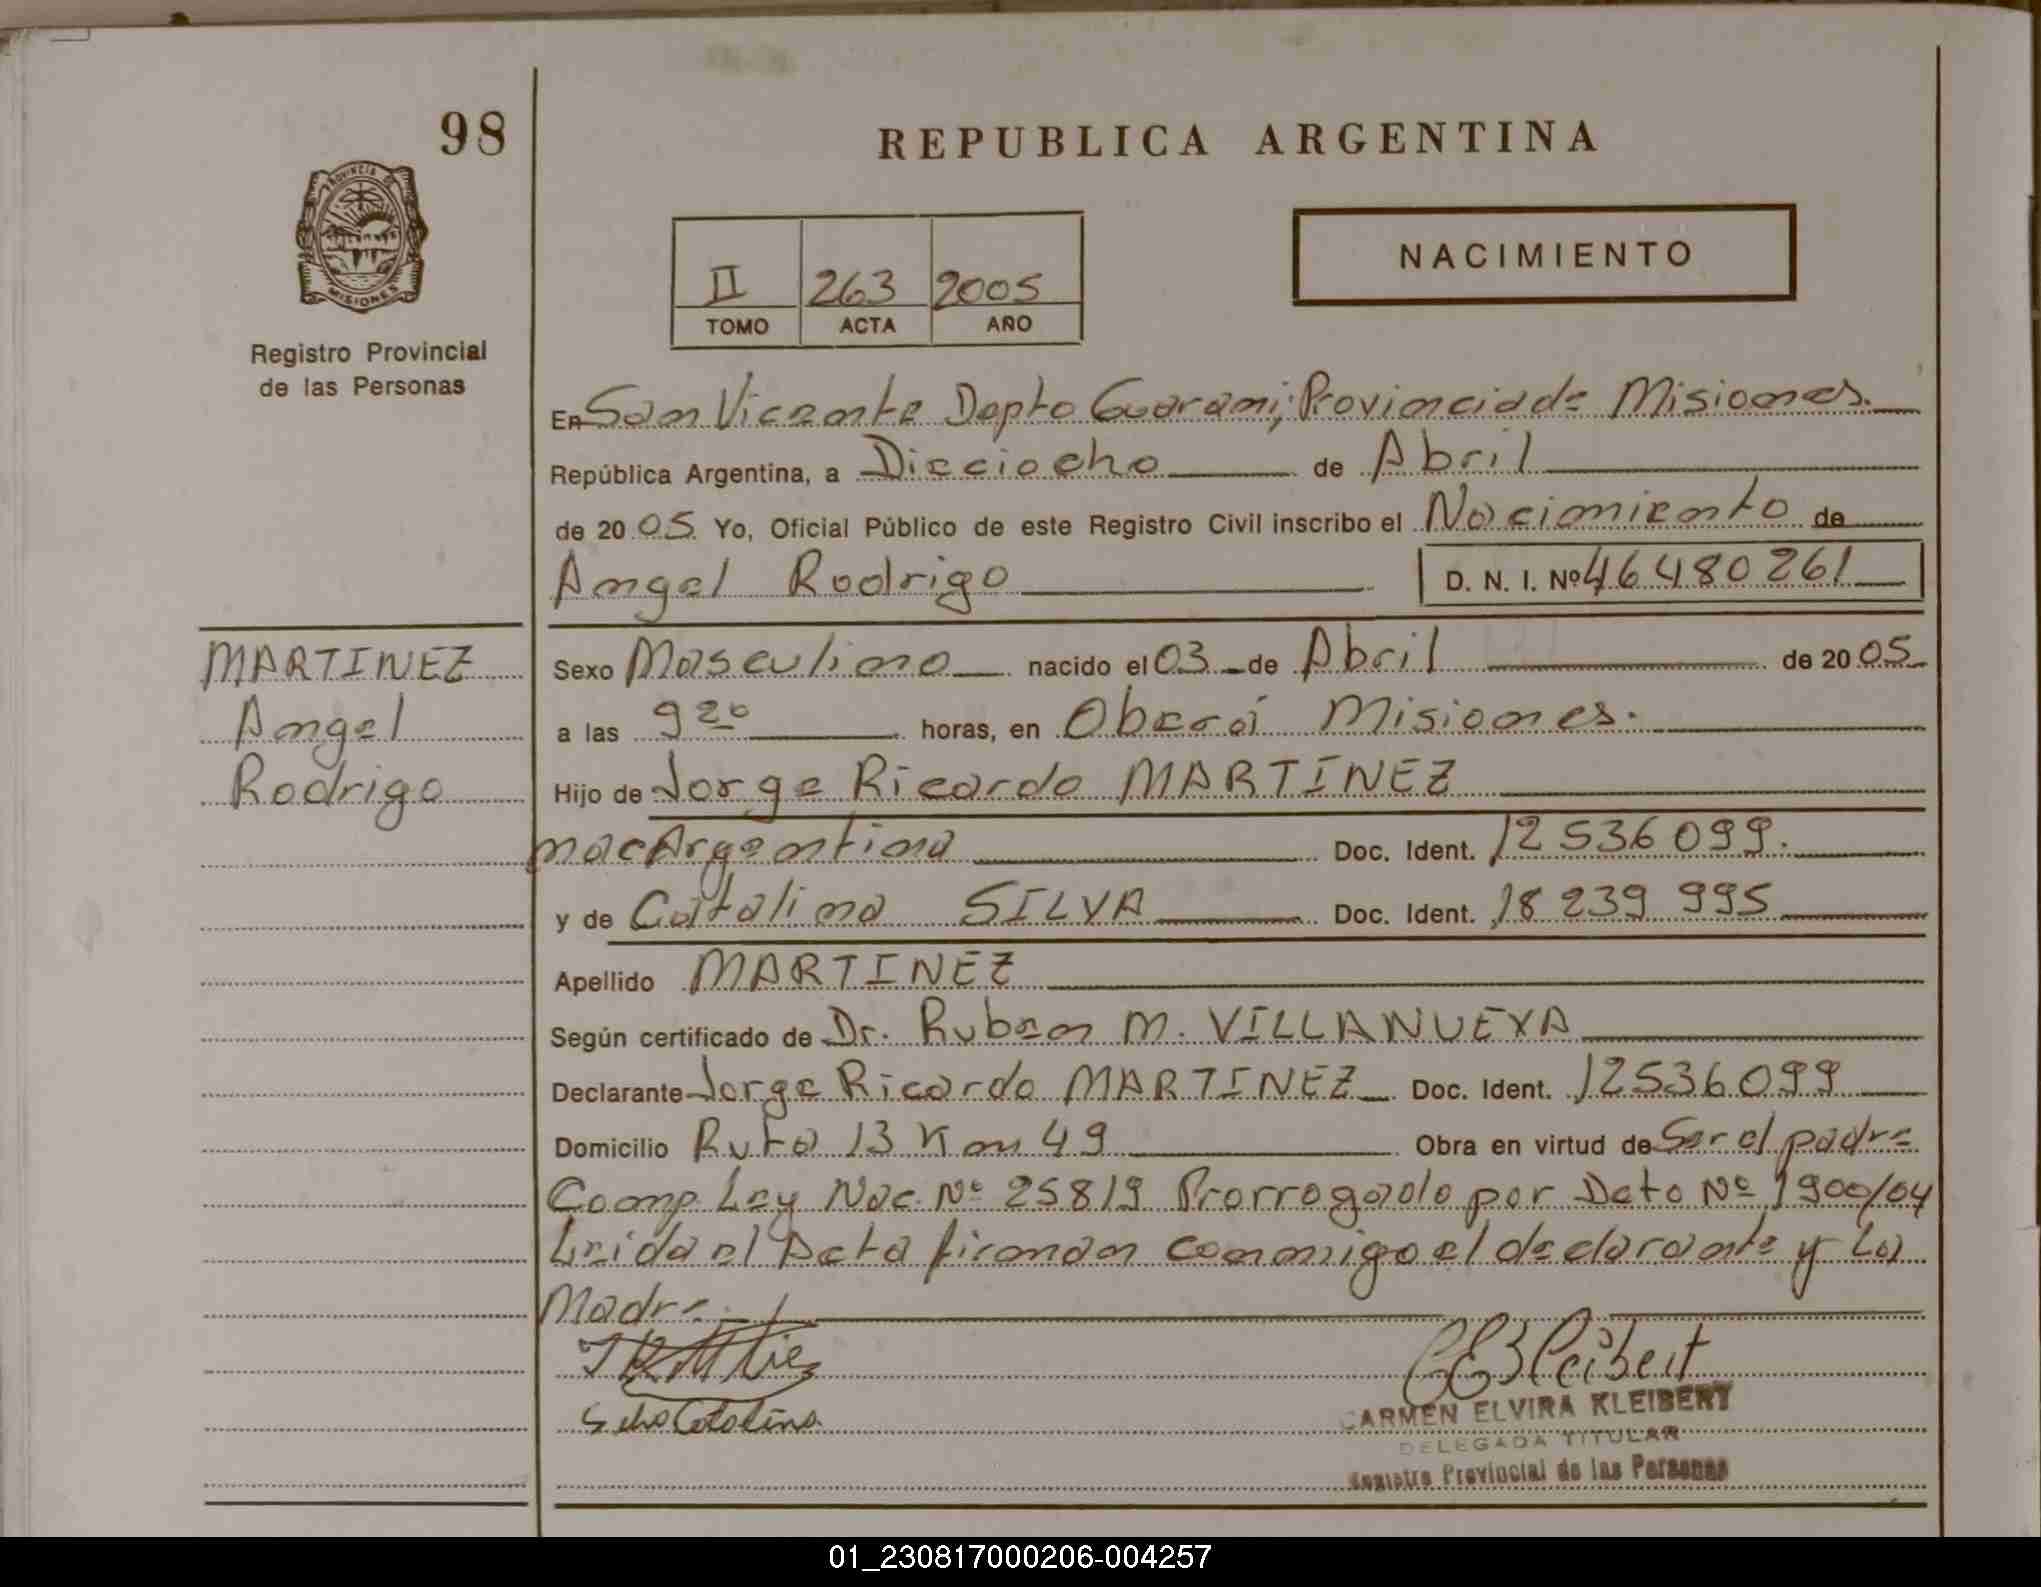 98
PROVINCIA DE
MISIONES
Registro Provincial
de las Personas
REPUBLICA ARGENTINA
II 263 2005
TOMO ACTA AÑO
NACIMIENTO
En San Vicente Depto Guarani; Provincia de Misiones.
República Argentina, a Dieciocho de Abril
de 20 05 Yo, Oficial Público de este Registro Civil inscribo el Nacimiento de
Angel Rodrigo D. N. I. Nº 46480261
MARTINEZ
Angel
Rodrigo
Sexo Masculino nacido el 03 de Abril de 20 05
a las 9 20 horas, en Oberá Misiones.
Hijo de Jorge Ricardo MARTINEZ
nac Argentina Doc. Ident. 12536099.
y de Catalina SILVA Doc. Ident. 18 239 995
Apellido MARTINEZ
Según certificado de Dr. Ruben M. VILLANUEVA
Declarante Jorge Ricardo MARTINEZ Doc. Ident. 12536099
Domicilio Ruta 13 Km 49 Obra en virtud de Ser el padre
Comp. Ley Nac. Nº 25819 Prorrogado por Dcto Nº 1900/04
Leida el Acta firman conmigo el declarante y La
Madre.
Silva Catalina
CEKleibert
CARMEN ELVIRA KLEIBERT
DELEGADA TITULAR
Registro Provincial de las Personas
01_230817000206-004257